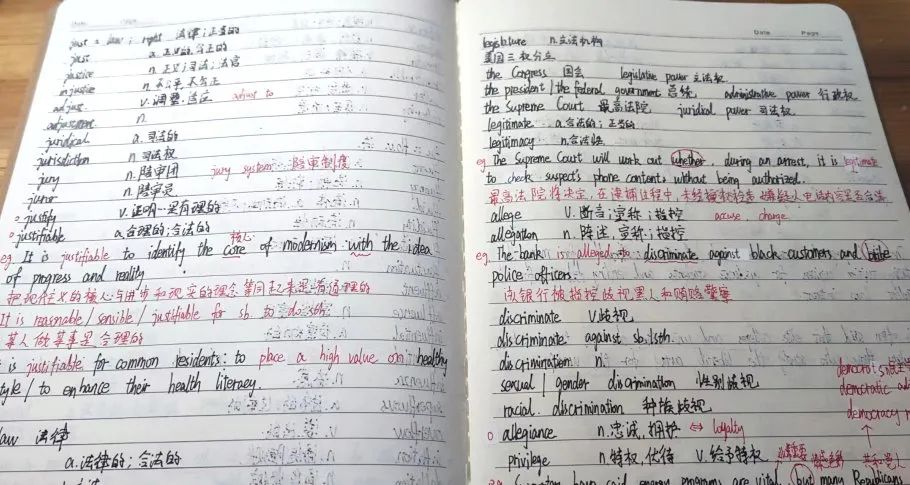 just = law ; right 法律;正当的
just a. 正义的;公正的
justice n. 正义;司法;法官
injustice n. 不公平,不公正
adjust v. 调整;适应 adjust to
adjustment n.
juridical a. 司法的
jurisdiction n. 司法权
jury n. 陪审团 jury system 陪审制度
juror n. 陪审员
justify v. 证明…是有理的
justifiable a. 合理的;合法的
eg It is justifiable to identify the core of modernism with the idea
核心
of progress and reality
把现代主义的核心与进步和现实的理念等同起来是有道理的
It is reasonable / sensible / justifiable for sb. to do sth.
某人做某事是合理的
is justifiable for common residents to place a high value on healthy
style / to enhance their health literacy.
law 法律
a. 法律的;合法的
Date Page
legislature n. 立法机构
美国三权分立
the Congress 国会 legislative power 立法权
the president / the federal government 总统 administrative power 行政权
the Supreme Court 最高法院 juridical power 司法权
legitimate a. 合法的;正当的
legitimacy n. 合法性
eg The Supreme Court will work out whether, during an arrest, it is legitimate
to check suspect's phone content, without being authorized.
最高法院将决定,在逮捕过程中,未经授权检查嫌疑人电话内容是否合法
allege v. 断言;宣称;指控 accuse, charge
allegation n. 陈述,宣称;指控
eg. The bank is alleged to discriminate against black customers and bribe
police officers.
该银行被指控歧视黑人和贿赂警察
discriminate v. 歧视
discriminate against sb./sth
discrimination n.
sexual / gender discrimination 性别歧视
racial discrimination 种族歧视
democratic
democracy
allegiance n. 忠诚,拥护 ⇔ loyalty
privilege n. 特权,优待 v. 给予特权
have said energy programs are vital, but many Republicans